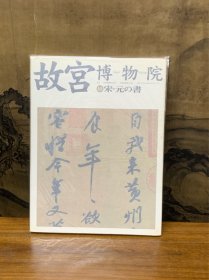 故宮博物院
宋・元の書
自我来黄州
食年〻欲
容惜今年又苦